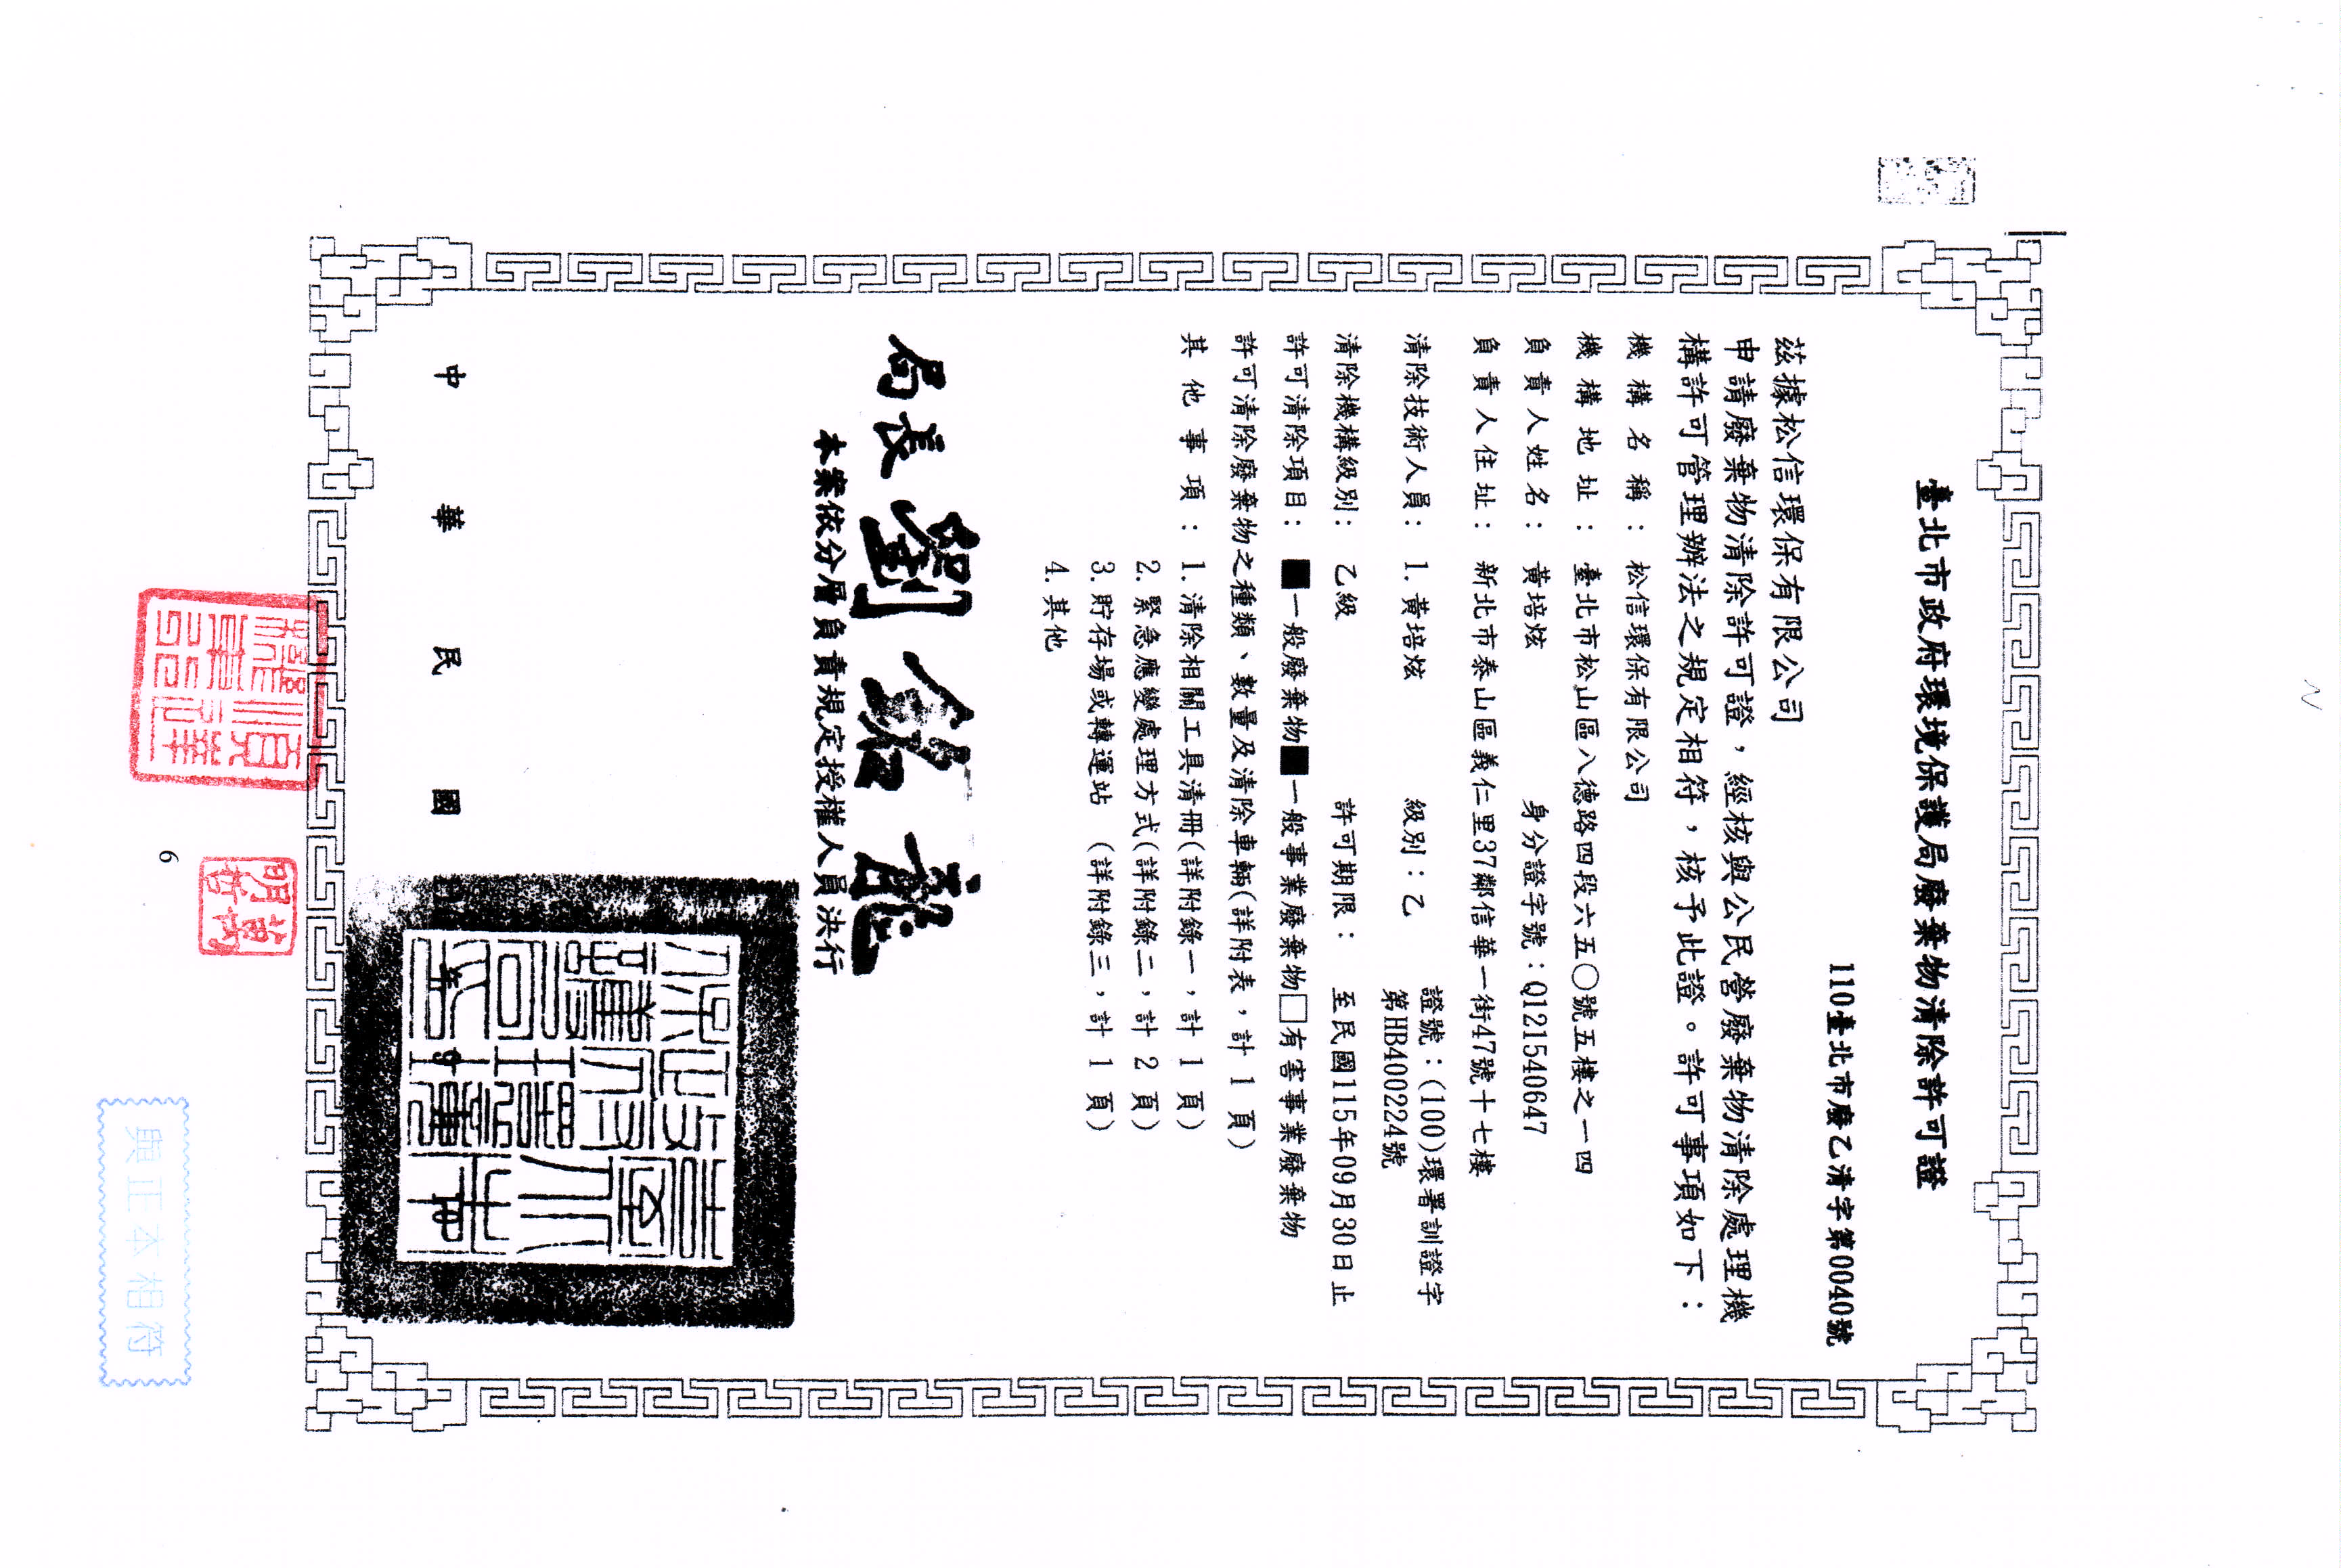 臺北市政府環境保護局廢棄物清除許可證
110臺北市廢乙清字第0040號
茲據松信環保有限公司
申請廢棄物清除許可證，經核與公民營廢棄物清除處理機
構許可管理辦法之規定相符，核予此證。許可事項如下：
機構名稱：松信環保有限公司
機構地址：臺北市松山區八德路四段六五〇號五樓之一四
負責人姓名：黃培炫 身分證字號：Q121540647
負責人住址：新北市泰山區義仁里37鄰信華一街47號十七樓
清除技術人員：1.黃培炫 級別：乙 證號：(100)環署訓證字
第HB400224號
清除機構級別：乙級 許可期限：至民國115年09月30日止
許可清除項目：■一般廢棄物■一般事業廢棄物□有害事業廢棄物
許可清除廢棄物之種類、數量及清除車輛(詳附表，計 1 頁)
其他事項：1.清除相關工具清冊(詳附錄一，計 1 頁)
2.緊急應變處理方式(詳附錄二，計 2 頁)
3.貯存場或轉運站 (詳附錄三，計 1 頁)
4.其他
局長劉銘龍
本案依分層負責規定授權人員決行
中華民國
6
與正本相符